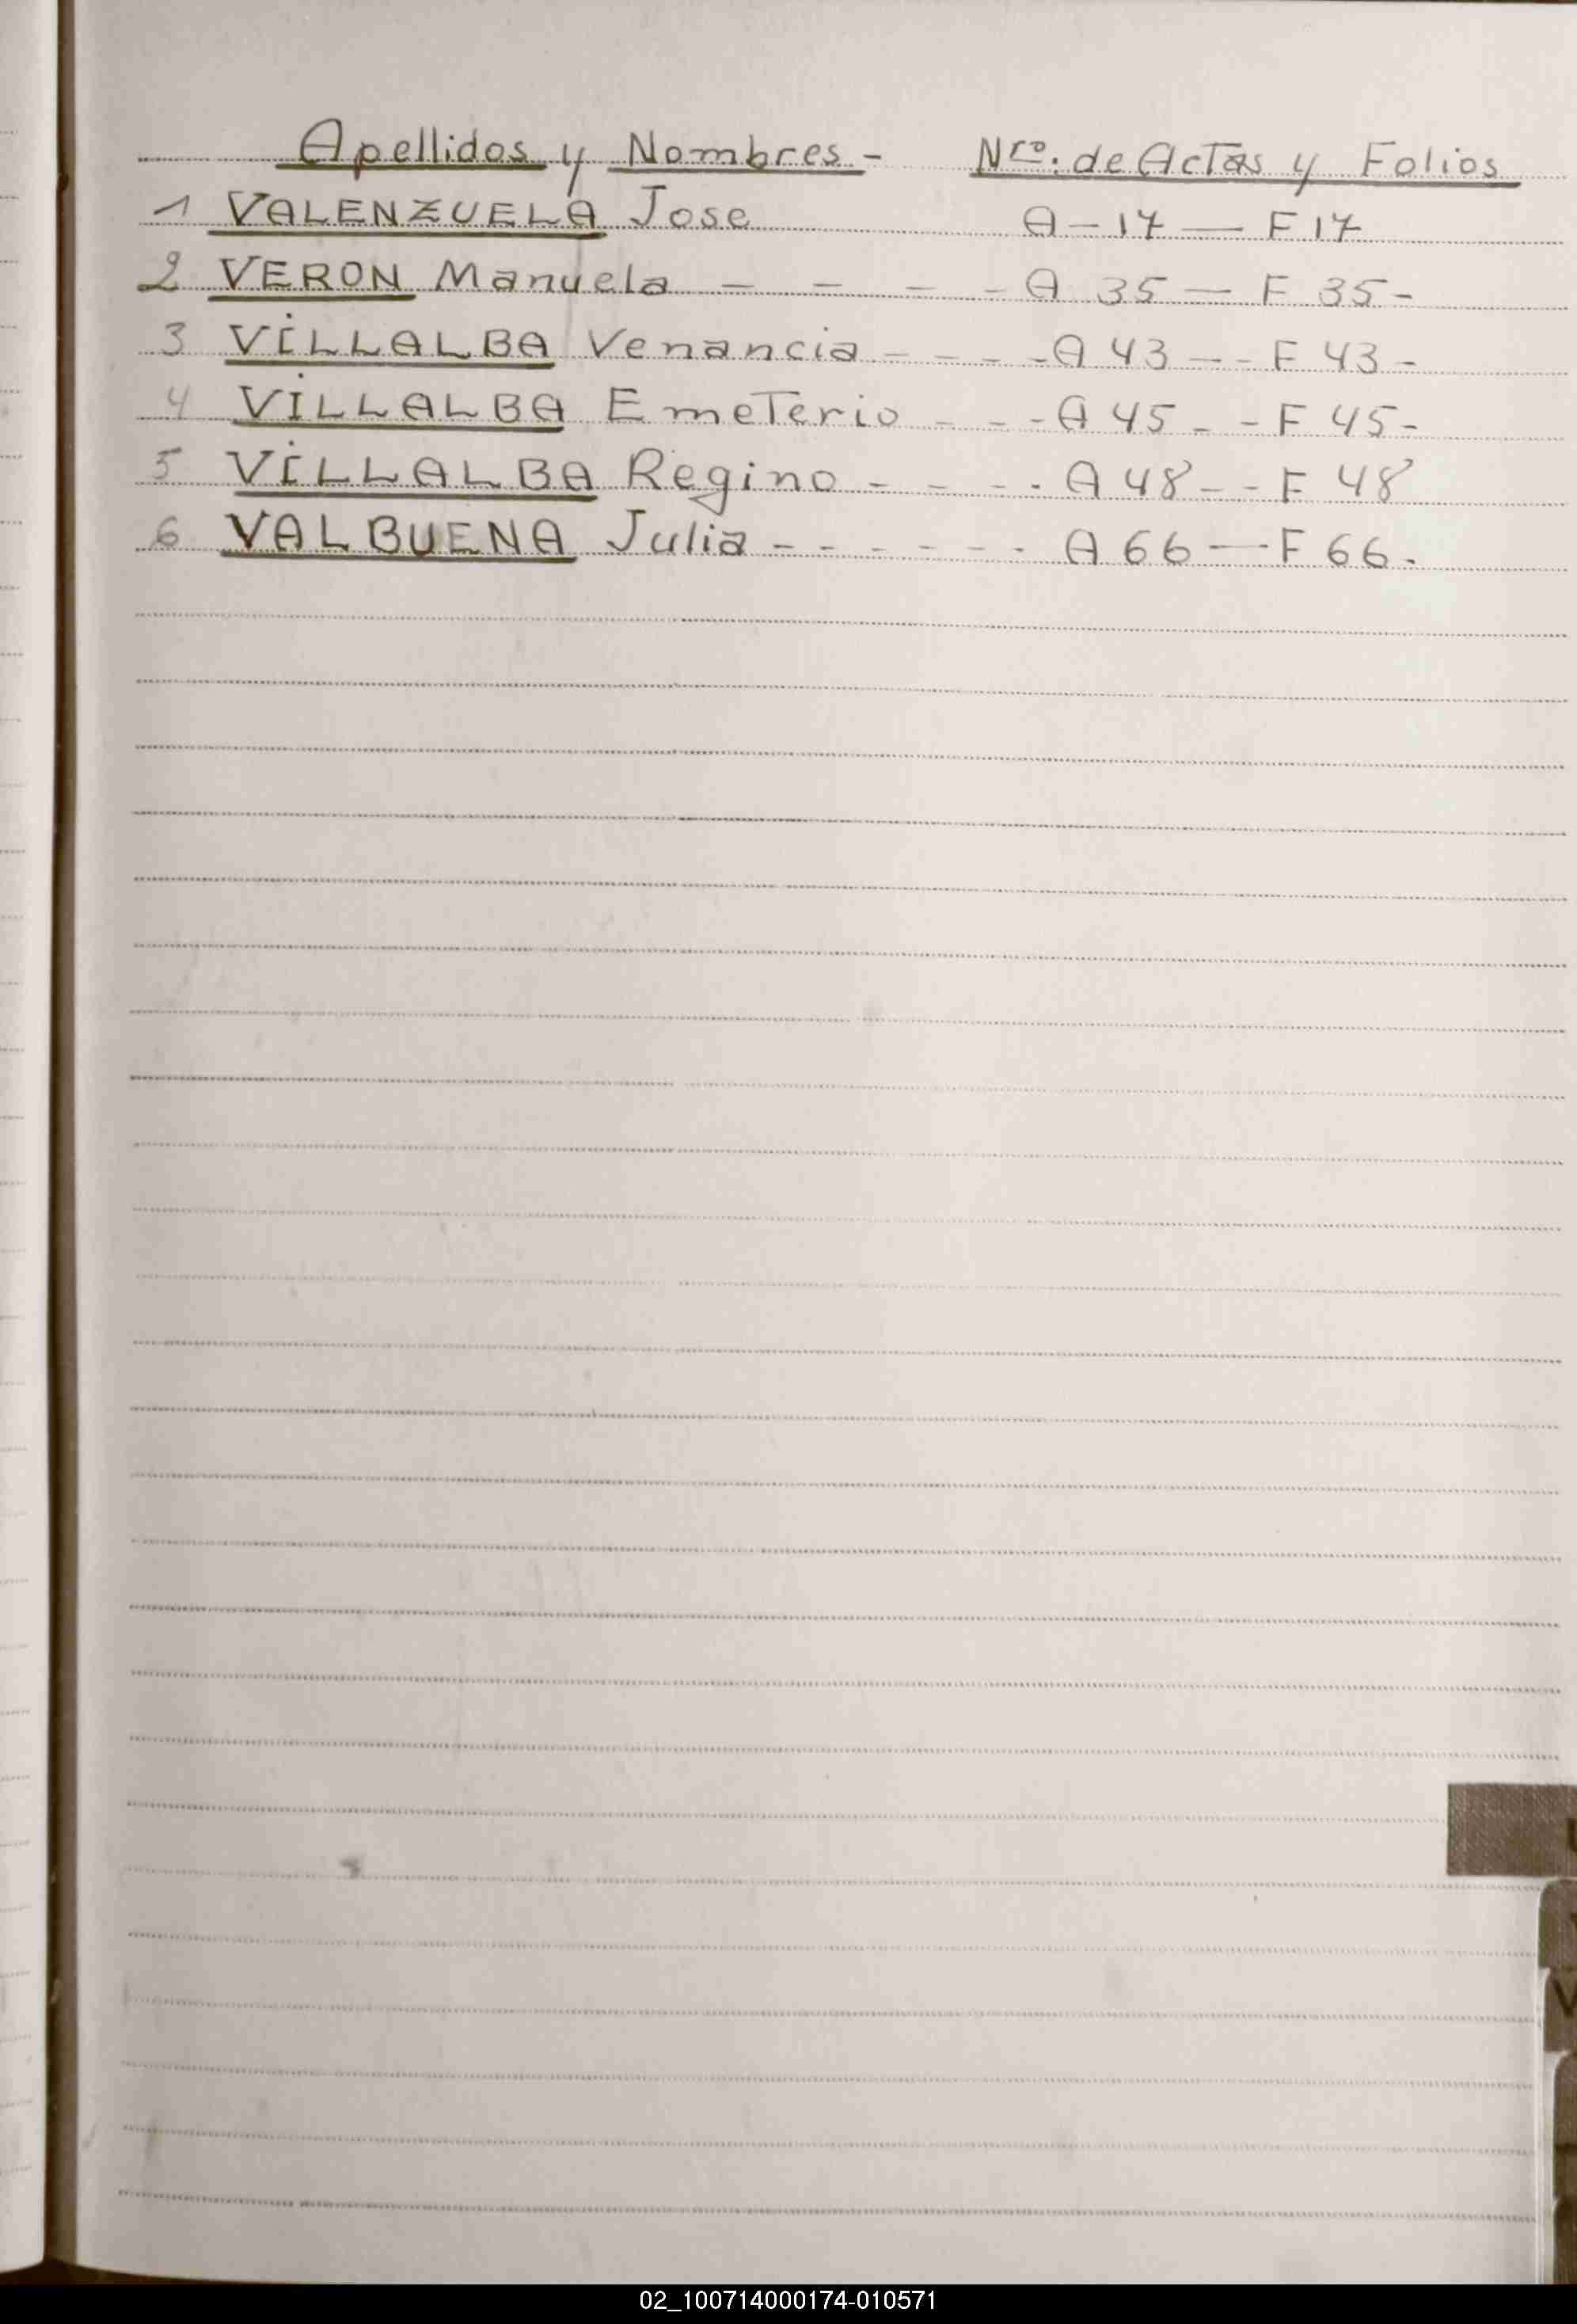 Apellidos y Nombres - Nro. de Actas y Folios
1 VALENZUELA Jose A - 17 — F 17
2 VERON Manuela - - - - A 35 — F 35 -
3 VILLALBA Venancia - - - - A 43 - - F 43 -
4 VILLALBA Emeterio - - - A 45 - - F 45 -
5 VILLALBA Regino - - - - A 48 - - F 48
6 VALBUENA Julia - - - - - - A 66 — F 66.
V
02_100714000174-010571